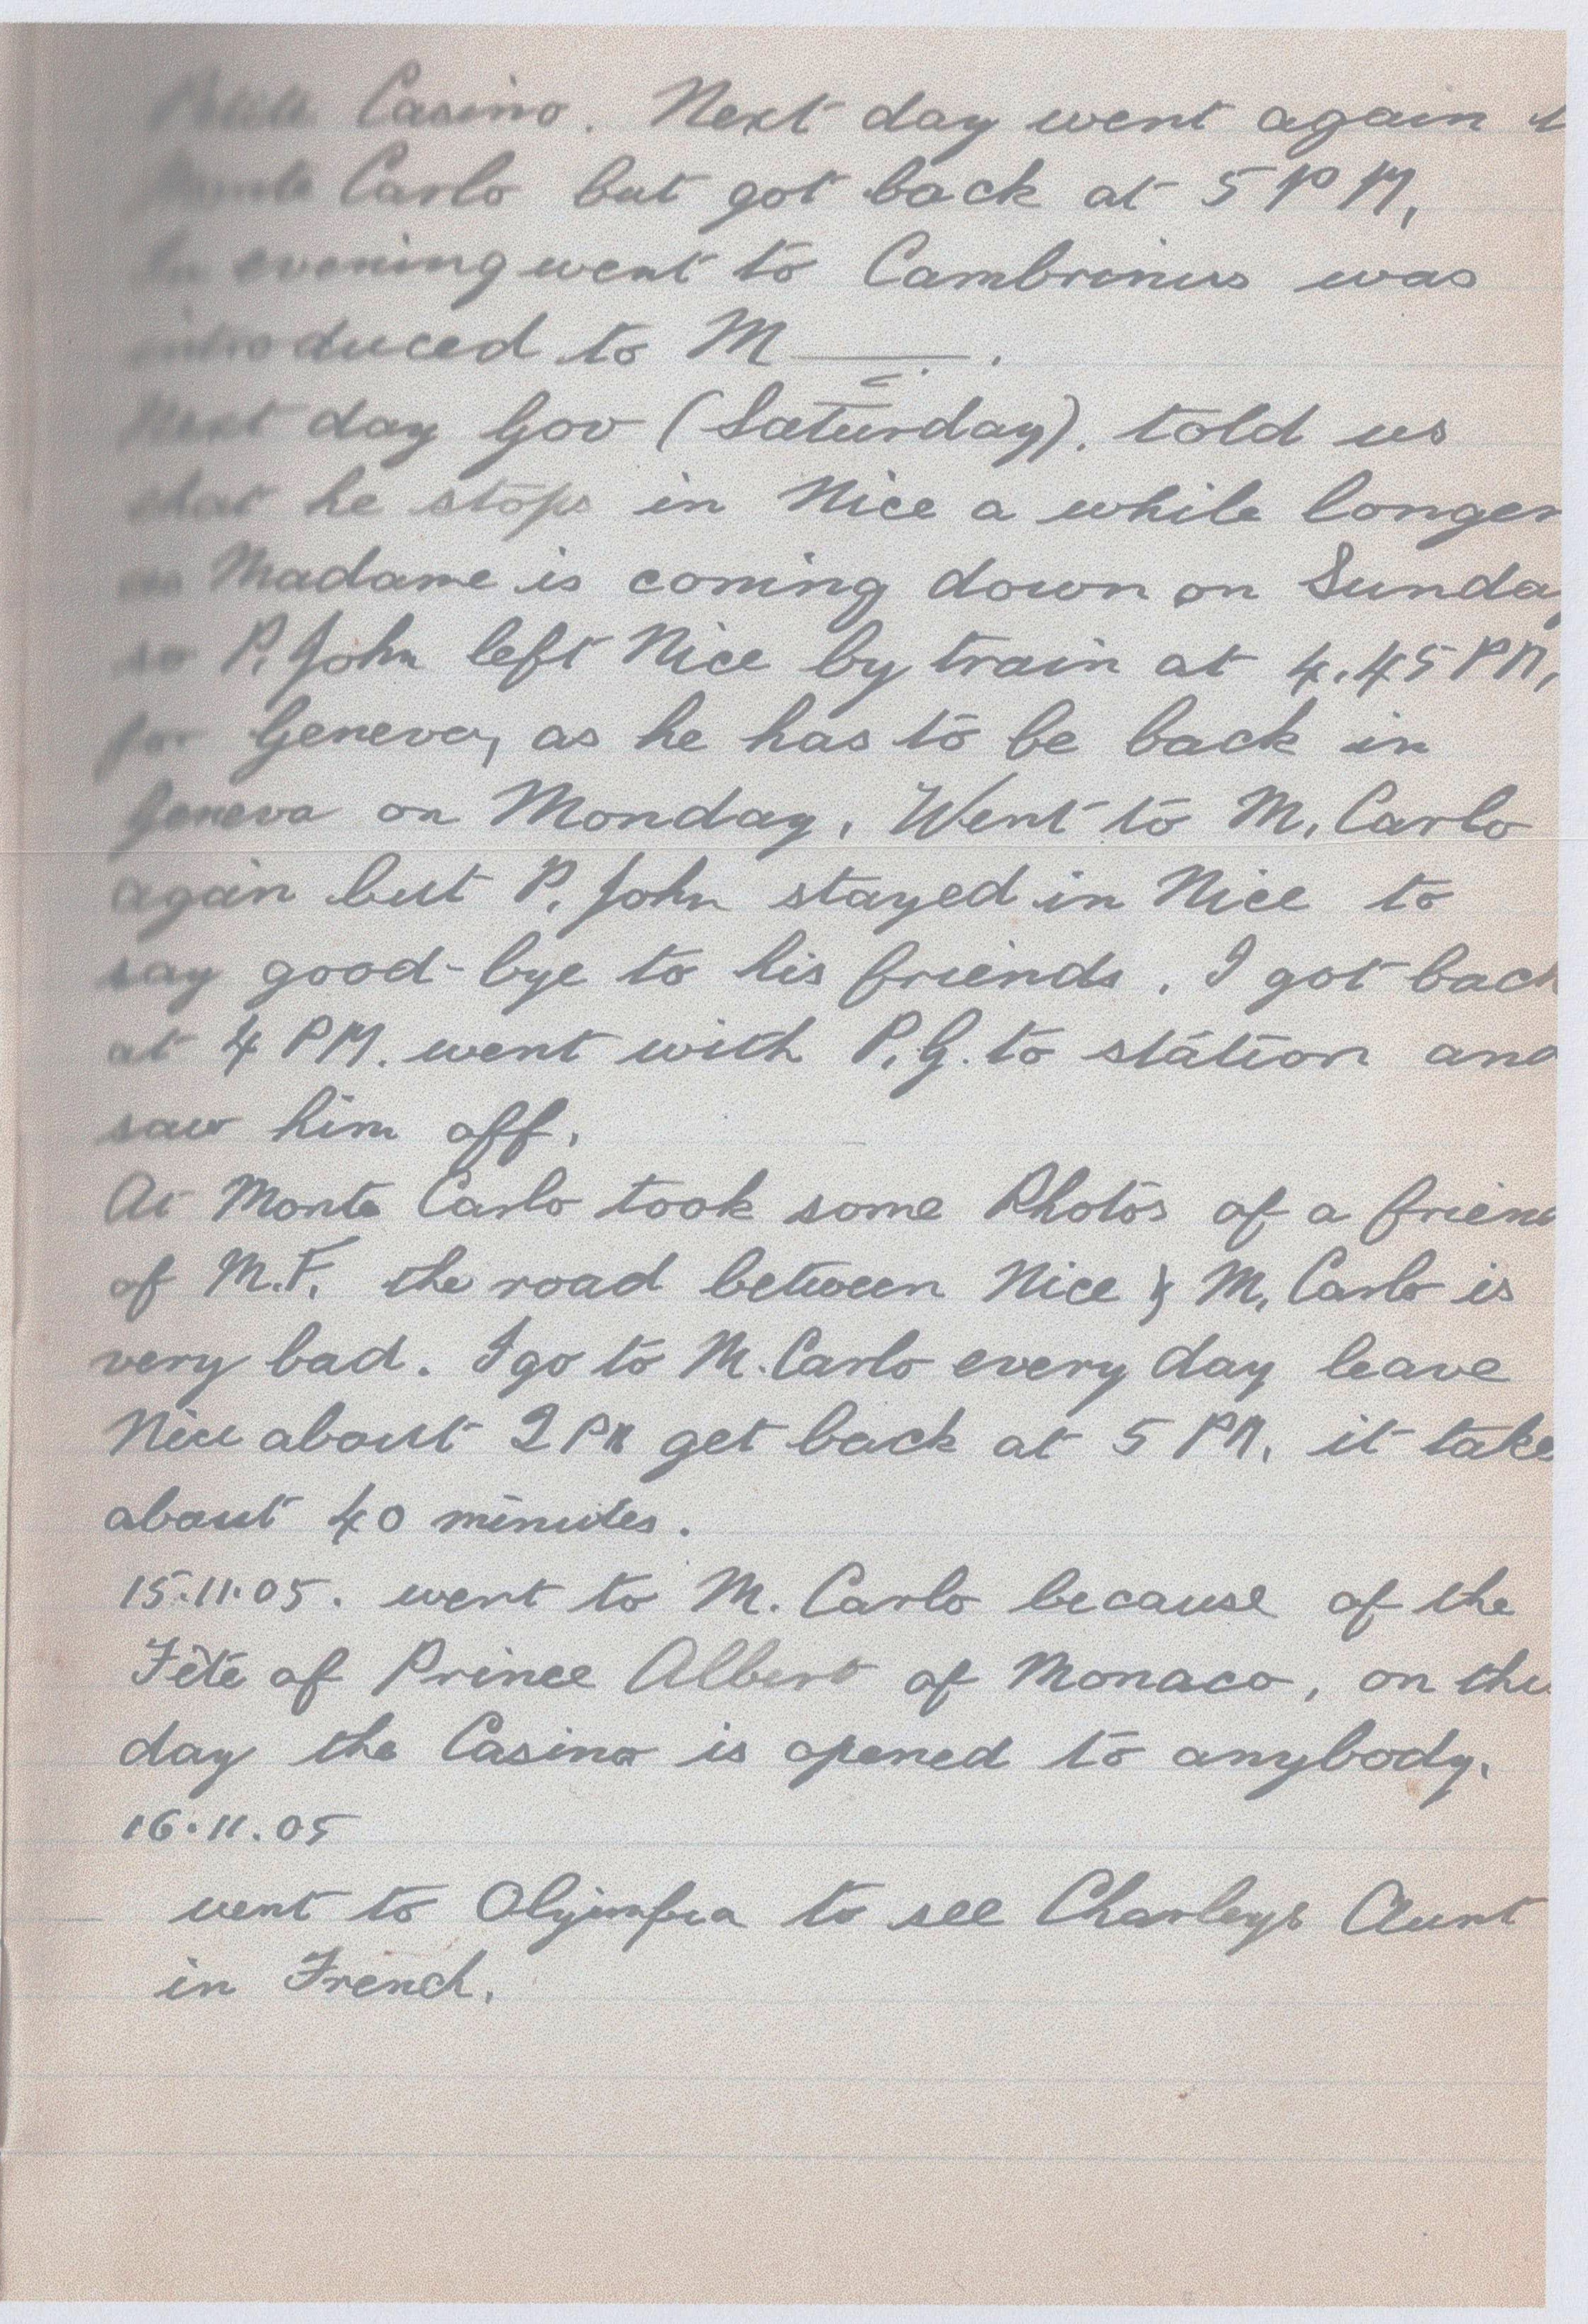 Petite Casino. Next day went again t
Monte Carlo but got back at 5 PM,
In evening went to Cambrinus was
introduced to M——.
Next day Gov (Saturday). told us
that he stops in Nice a while longer
as Madame is coming down on Sunda
so P. John left Nice by train at 4.45 PM,
for Geneva, as he has to be back in
Geneva on Monday. Went to M. Carlo
again but P. John stayed in Nice to
say good-bye to his friends. I got back
at 4 PM. went with P.G. to station and
saw him off.
At Monte Carlo took some Photos of a frien
of M.F. the road between Nice & M. Carlo is
very bad. I go to M. Carlo every day leave
Nice about 2 PM get back at 5 PM. it take
about 40 minutes.
15.11.05. went to M. Carlo because of the
Fête of Prince Albert of Monaco, on the
day the Casino is opened to anybody.
16.11.05
went to Olympia to see Charleys Aunt
in French.